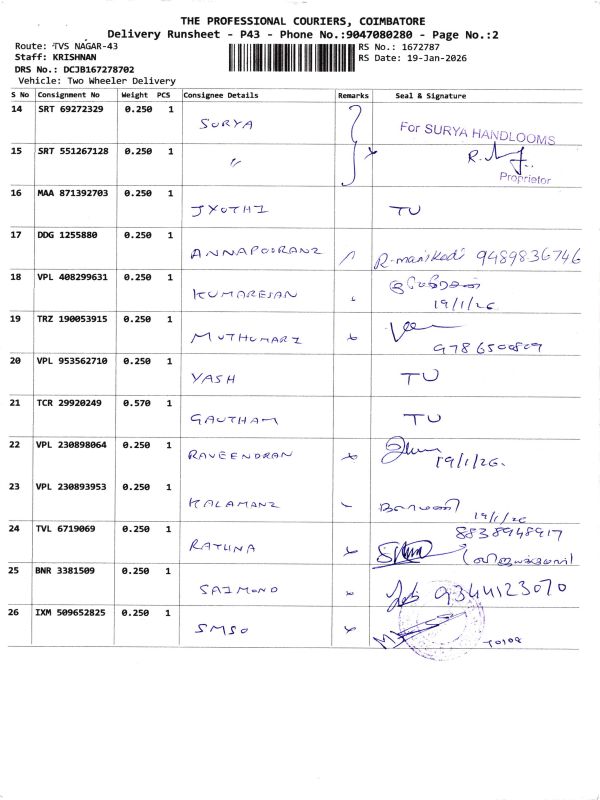 THE PROFESSIONAL COURIERS, COIMBATORE
Delivery Runsheet - P43 - Phone No.:9047080280 - Page No.:2
Route: TVS NAGAR-43
RS No.: 1672787
Staff: KRISHNAN
RS Date: 19-Jan-2026
DRS No.: DCJB167278702
Vehicle: Two Wheeler Delivery
S No Consignment No Weight PCS Consignee Details Remarks Seal & Signature
14 SRT 69272329 0.250 1 SURYA
For SURYA HANDLOOMS
Proprietor
15 SRT 551267128 0.250 1 〃
16 MAA 871392703 0.250 1 JYOTHI TU
17 DDG 1255880 0.250 1 ANNAPOORANI R. manikodi 9489836746
18 VPL 408299631 0.250 1 KUMARESAN
19/1/26
19 TRZ 190053915 0.250 1 MUTHUMARI
9786500809
20 VPL 953562710 0.250 1 YASH TU
21 TCR 29920249 0.570 1 GAUTHAM TU
22 VPL 230898064 0.250 1 RAVEENDRAN 19/1/26.
23 VPL 230893953 0.250 1 KALAMANI
19/1/26
24 TVL 6719069 0.250 1 RATHNA 8838948917
25 BNR 3381509 0.250 1 SAIMOND 9344123070
26 IXM 509652825 0.250 1 SMSO